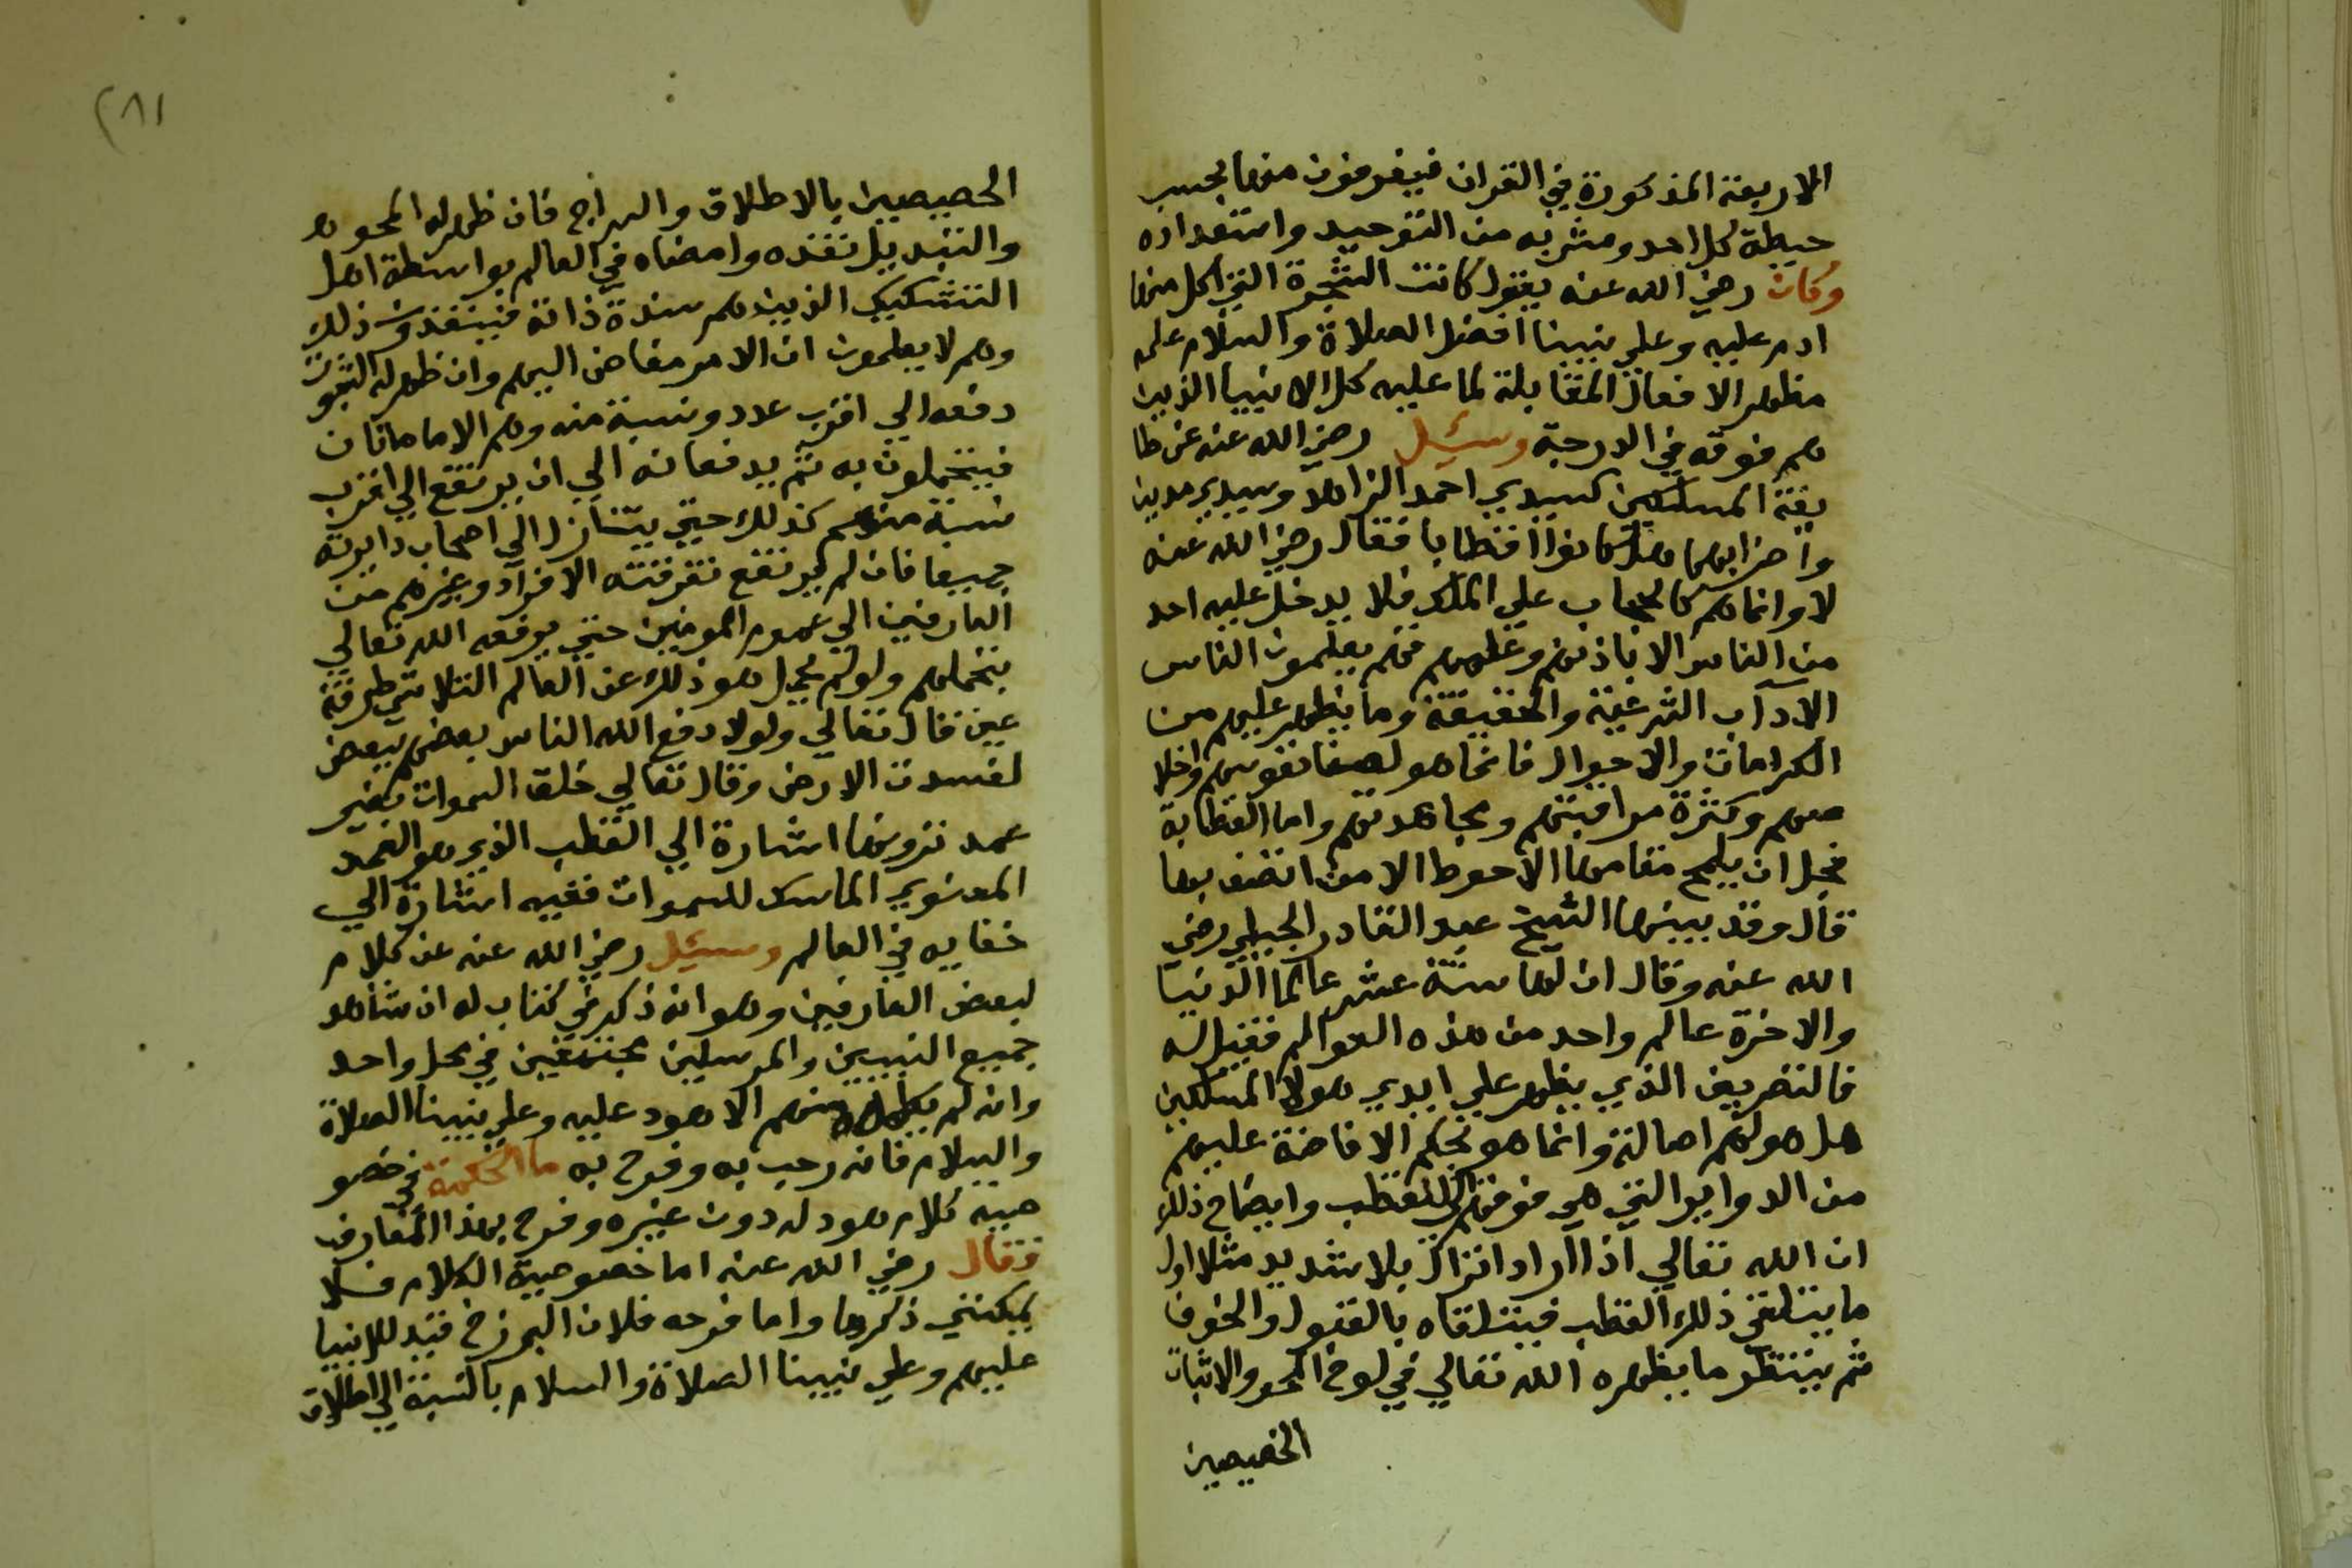 الاربعة المذكورة في القران فيغرفون منها بحسب
حيطة كل احد ومشربه من التوحيد واستعداده
وكان رضي الله عنه يقول كانت الشجرة التي اكل منها
ادم عليه وعلي نبينا افضل الصلاة والسلام علم
مظهر الافعال المقابلة لما عليه كل الانبيا الذين
هم فوقه في الدرجة وسئيل رضي الله عنه عن طا
يفة المسلكين كسيدي احمد الزاهد وسيدي مدين
واضرابهما هل كانوا اقطابا فقال رضي الله عنه
لا وانما هم كالحجاب علي الملك فلا يدخل عليه احد
من الناس الا باذنهم وعلمهم فهم يعلمون الناس
الآداب الشرعية والحقيقة وما يظهر عليهم من
الكرامات والاحوال فانما هو لصفا نفوسهم واخلا
صهم وكثرة مراقبتهم ومجاهدتهم واما القطابة
فجل ان يلمح مقامها الاحوط الا من اتصف بها
قال وقد بينها الشيخ عبد القادر الجيلي رضي
الله عنه وقال ان لها ستة عشر عالما الدنيا
والاخرة عالم واحد من هذه العوالم فقيل له
فالتصريف الذي يظهر علي ايدي هولا المسلكين
هل هو لهم اصالة وانما هو بحكم الافاضة عليهم
من الدواير التي هي فوقهم الي القطب وايضاح ذلك
ان الله تعالي اذا اراد انزال بلا شديد مثلا اول
ما يتلقي ذلك القطب فيتلقاه بالقبول والخوف
ثم ينتظر ما يظهره الله تعالي في لوح المحو والاثبات
الخصيصين
٢٨١
الخصيصين بالاطلاق والسراح فان ظهر له المحو
والتبديل نفذه وامضاه في العالم بواسطة اهل
التشكيك الذين هم سدنة ذاته فينفذون ذلك
وهم لا يعلمون ان الامر مفاض اليهم وان ظهر له الثبوت
دفعه الي اقرب عدد ونسبة منه وهم الامامان
فيتحملون به ثم يدفعانه الي ان يرتفع الي اقرب
نسبة منهم كذلك حتي يتنازل الي اصحاب دايرته
جميعا فان لم يرتفع تفرقته الافراد وغيرهم من
العارفين الي عموم المومنين حتي يرفعه الله تعالي
بتحملهم ولو لم يحمل هو ذلك عن العالم لتلاشي طرفة
عين قال تعالي ولولا دفع الله الناس بعضهم ببعض
لفسدت الارض وقال تعالي خلق السموات بغير
عمد ترونها اشارة الي القطب الذي هو العمد
المعنوي الماسك للسموات ففيه اشارة الي
خفايه في العالم وسئيل رضي الله عنه عن كلام
لبعض العارفين وهو انه ذكر في كتاب له انه شاهد
جميع النبيين والمرسلين مجتمعين في محل واحد
وانه لم يكلمه منهم الا هود عليه وعلي نبينا الصلاة
والسلام فانه رحب به وفرح به ما الحكمة في خصو
صية كلام هود له دون غيره وفرح بهذا العارف
فقال رضي الله عنه اما خصوصية الكلام فلا
يمكنني ذكرها واما فرحه فلان البرزخ قيد للانبيا
عليهم وعلي نبينا الصلاة والسلام بالنسبة الي اطلاق